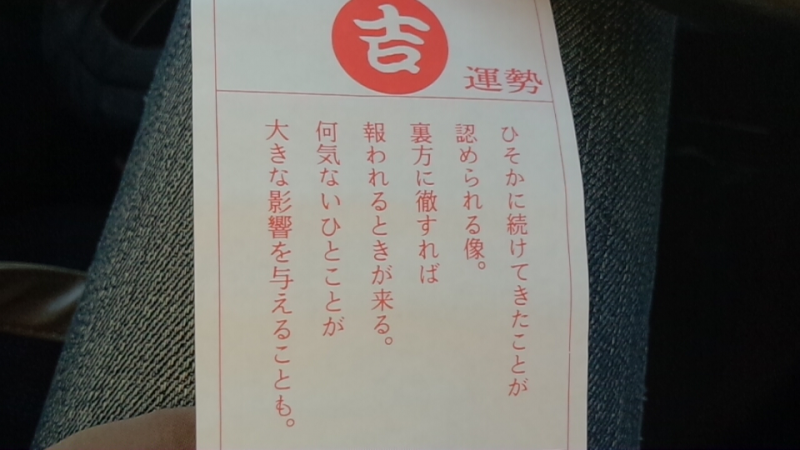 吉
運勢
ひそかに続けてきたことが
認められる像。
裏方に徹すれば
報われるときが来る。
何気ないひとことが
大きな影響を与えることも。